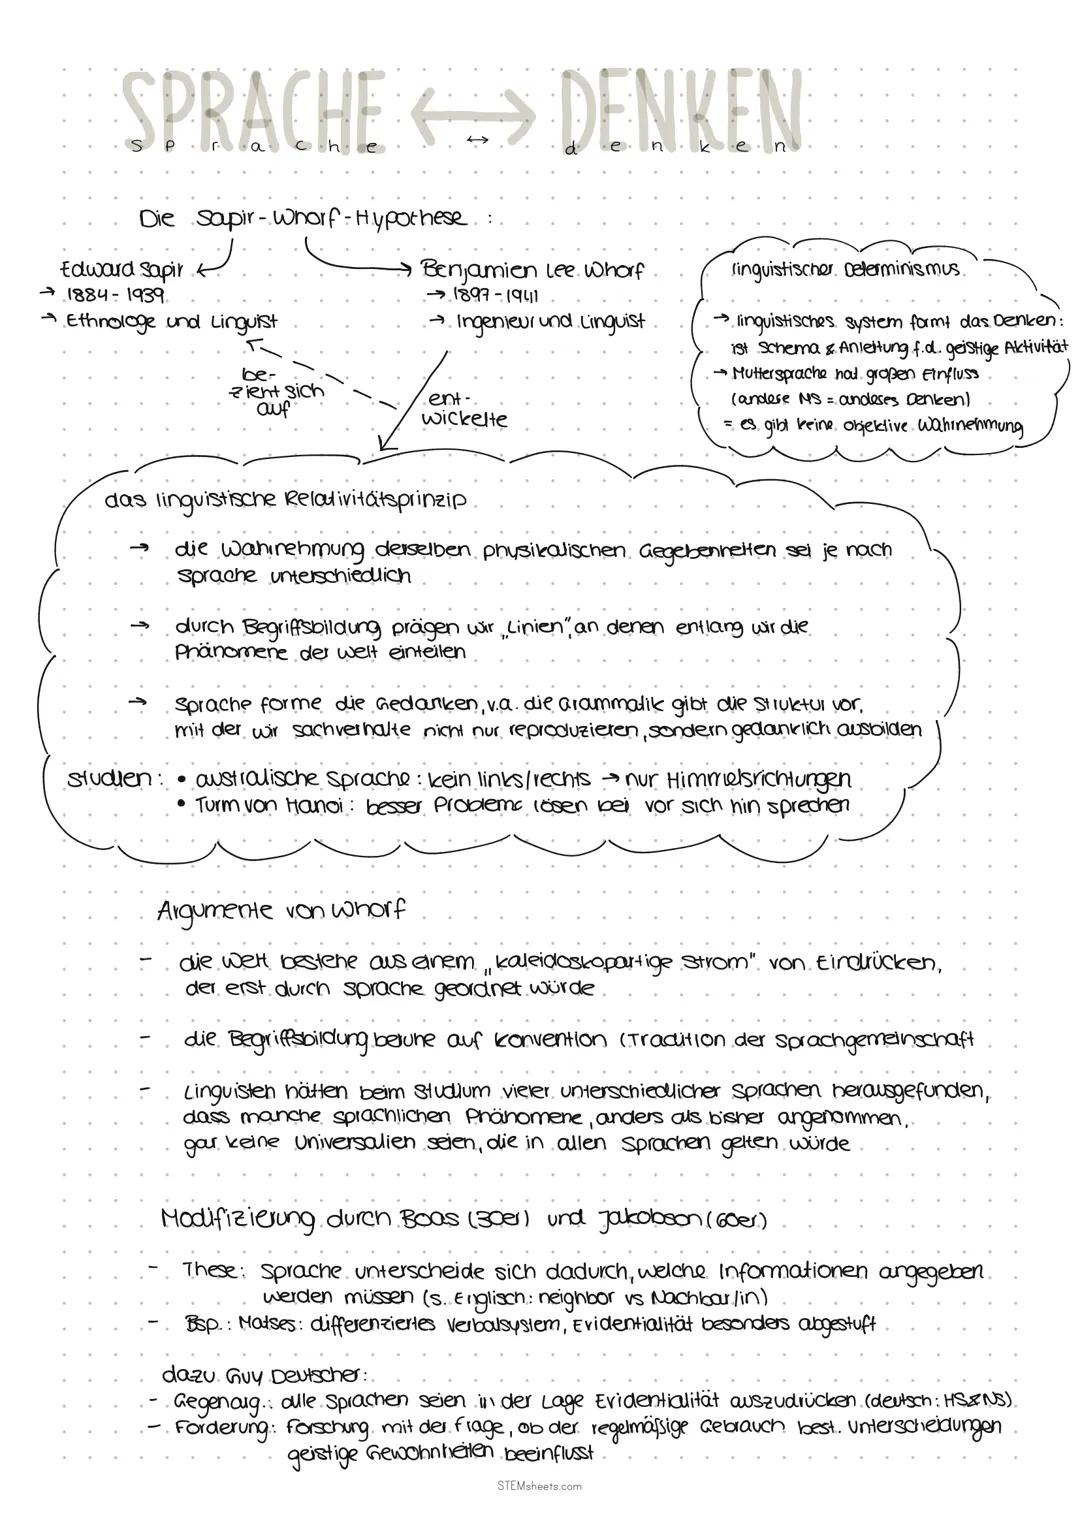 SPRACHE ↔ DENKEN
sprache ↔ denken
Die Sapir-Whorf-Hypothese :
Edward Sapir
→ 1884 - 1939
→ Ethnologe und Linguist
Benjamien Lee Whorf
→ 1897 - 1941
→ Ingenieur und Linguist
be-
zieht sich
auf
ent-
wickelte
linguistischer Determinismus
→ linguistisches System formt das Denken:
ist Schema & Anleitung f.d. geistige Aktivität
→ Muttersprache hat großen Einfluss
(andere MS = anderes Denken)
= es gibt keine objektive Wahrnehmung
das linguistische Relativitätsprinzip
→ die Wahrnehmung derselben physikalischen Gegebenheiten sei je nach
Sprache unterschiedlich
→ durch Begriffsbildung prägen wir „Linien", an denen entlang wir die
Phänomene der Welt einteilen
→ Sprache forme die Gedanken, v.a. die Grammatik gibt die Struktur vor,
mit der wir Sachverhalte nicht nur reproduzieren, sondern gedanklich ausbilden
Studien: • australische Sprache: kein links/rechts → nur Himmelsrichtungen
• Turm von Hanoi: besser Probleme lösen bei vor sich hin sprechen
Argumente von Whorf
- die Welt bestehe aus einem „kaleidoskopartige Strom" von Eindrücken,
der erst durch Sprache geordnet würde
- die Begriffsbildung beruhe auf Konvention (Tradition der Sprachgemeinschaft
- Linguisten hätten beim Studium vieler unterschiedlicher Sprachen herausgefunden,
dass manche sprachlichen Phänomene, anders als bisher angenommen,
gar keine Universalien seien, die in allen Sprachen gelten würde
Modifizierung durch Boas (30er) und Jakobson (60er)
- These: Sprache unterscheide sich dadurch, welche Informationen angegeben
werden müssen (s. Englisch: neighbor vs Nachbar/in)
- Bsp.: Matses: differenziertes Verbalsystem, Evidentialität besonders abgestuft
dazu Guy Deutscher:
- Gegenarg.: alle Sprachen seien in der Lage Evidentialität auszudrücken (deutsch: HS&NS)
- Forderung: Forschung mit der Frage, ob der regelmäßige Gebrauch best. Unterscheidungen
geistige Gewohnheiten beeinflusst
STEMsheets.com